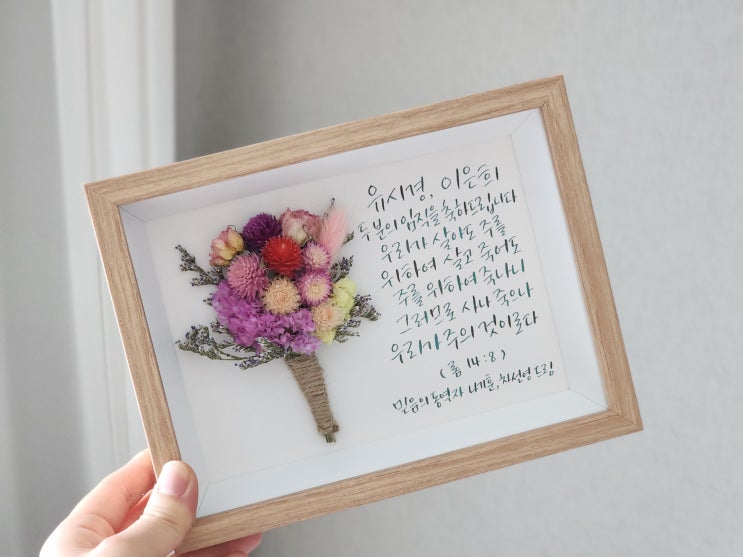 유시경, 이은희
두분의 임직을 축하드립니다
우리가 살아도 주를
위하여 살고 죽어도
주를 위하여 죽나니
그러므로 사나 죽으나
우리가 주의 것이로다
(롬 14:8)
믿음의 동역자 차선영 드림